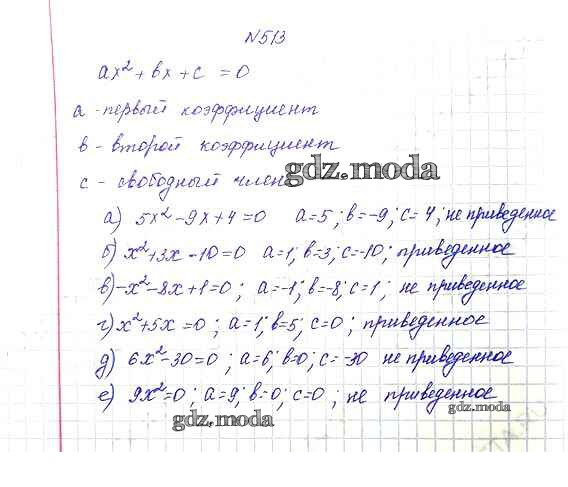 N513
ax² + bx + c = 0
a - первый коэффициент
b - второй коэффициент
gdz.moda
c - свободный член
а) 5x² - 9x + 4 = 0 a = 5; b = -9; c = 4; не приведенное
б) x² + 3x - 10 = 0 a = 1; b = 3; c = -10; приведенное
в) -x² - 8x + 1 = 0; a = -1; b = -8; c = 1; не приведенное
г) x² + 5x = 0; a = 1; b = 5; c = 0; приведенное
д) 6x² - 30 = 0; a = 6; b = 0; c = -30 не приведенное
е) 9x² = 0; a = 9; b = 0; c = 0; не приведенное
gdz.moda
gdz.moda